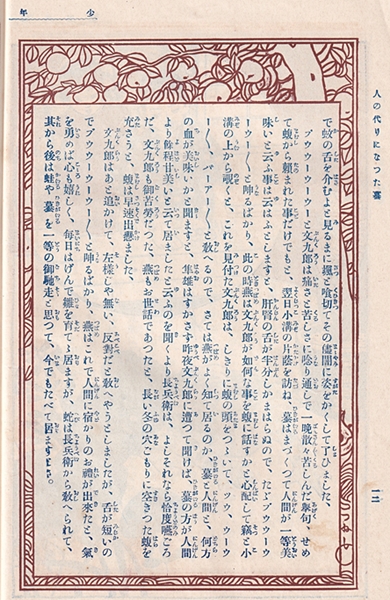 少年
人の代りになつた蟇
一二
で蚊の舌を介むよと見るまに堀と喰切てその儘闇に姿をかくして了ひました、
ブゥウゥウゥーと文九郎は痛さと苦しさに唸り通しで一晩散々苦しんだ擧句、せめ
て蝮から頼まれた事だけでもと、翌日小溝の片蔭を訪ね、蟇はまづくつて人間が一等美
味いと云ふ事は云はふとしますと、肝腎の舌が半分しかまはらぬので、たゞブウウゥ
ーウゥー〳〵と呻るばかり、此の時燕は文九郎が如何な事を蝮に話すかと心配して竊と小
溝の上から覗くと、これを見付た文九郎は、しきりに蝮の頭をつゝいて、ウゥ、ウーウ
ー〳〵、バーアー〳〵と敎へるので、さては燕がよく知て居るのか、蟇と人間と、何方
の血が美味いかと聞ますと、隼雄はすかさず昨夜文九郎に遭つて聞けば、蟇の方が人間
より餘程甘美いと云て居ましたと云ふのを聞くより長兵衛は、よしそれなら恰度嚥ごろ
だ、文九郎も御苦勞だつた、燕もお世話であつたと、長い冬の穴ごもりに空きつた腹を
充さうと、蝮は早速出懸ました
文九郎はあと追かけて、左樣じや無い、反對だと敎へやうとしましたが、舌が短いの
でブウゥウーウゥー〳〵と呻るばかり、燕はこれで人間に宿かりのお禮が出來たと、氣
を勇めば心も嬉しく、每日はげんで雛を育てゝ居ますが、蛇は長兵衛から敎へられて、
其から後は蛙や、蟇を一等の御馳走と思つて、今でもたべて居ますとさ。